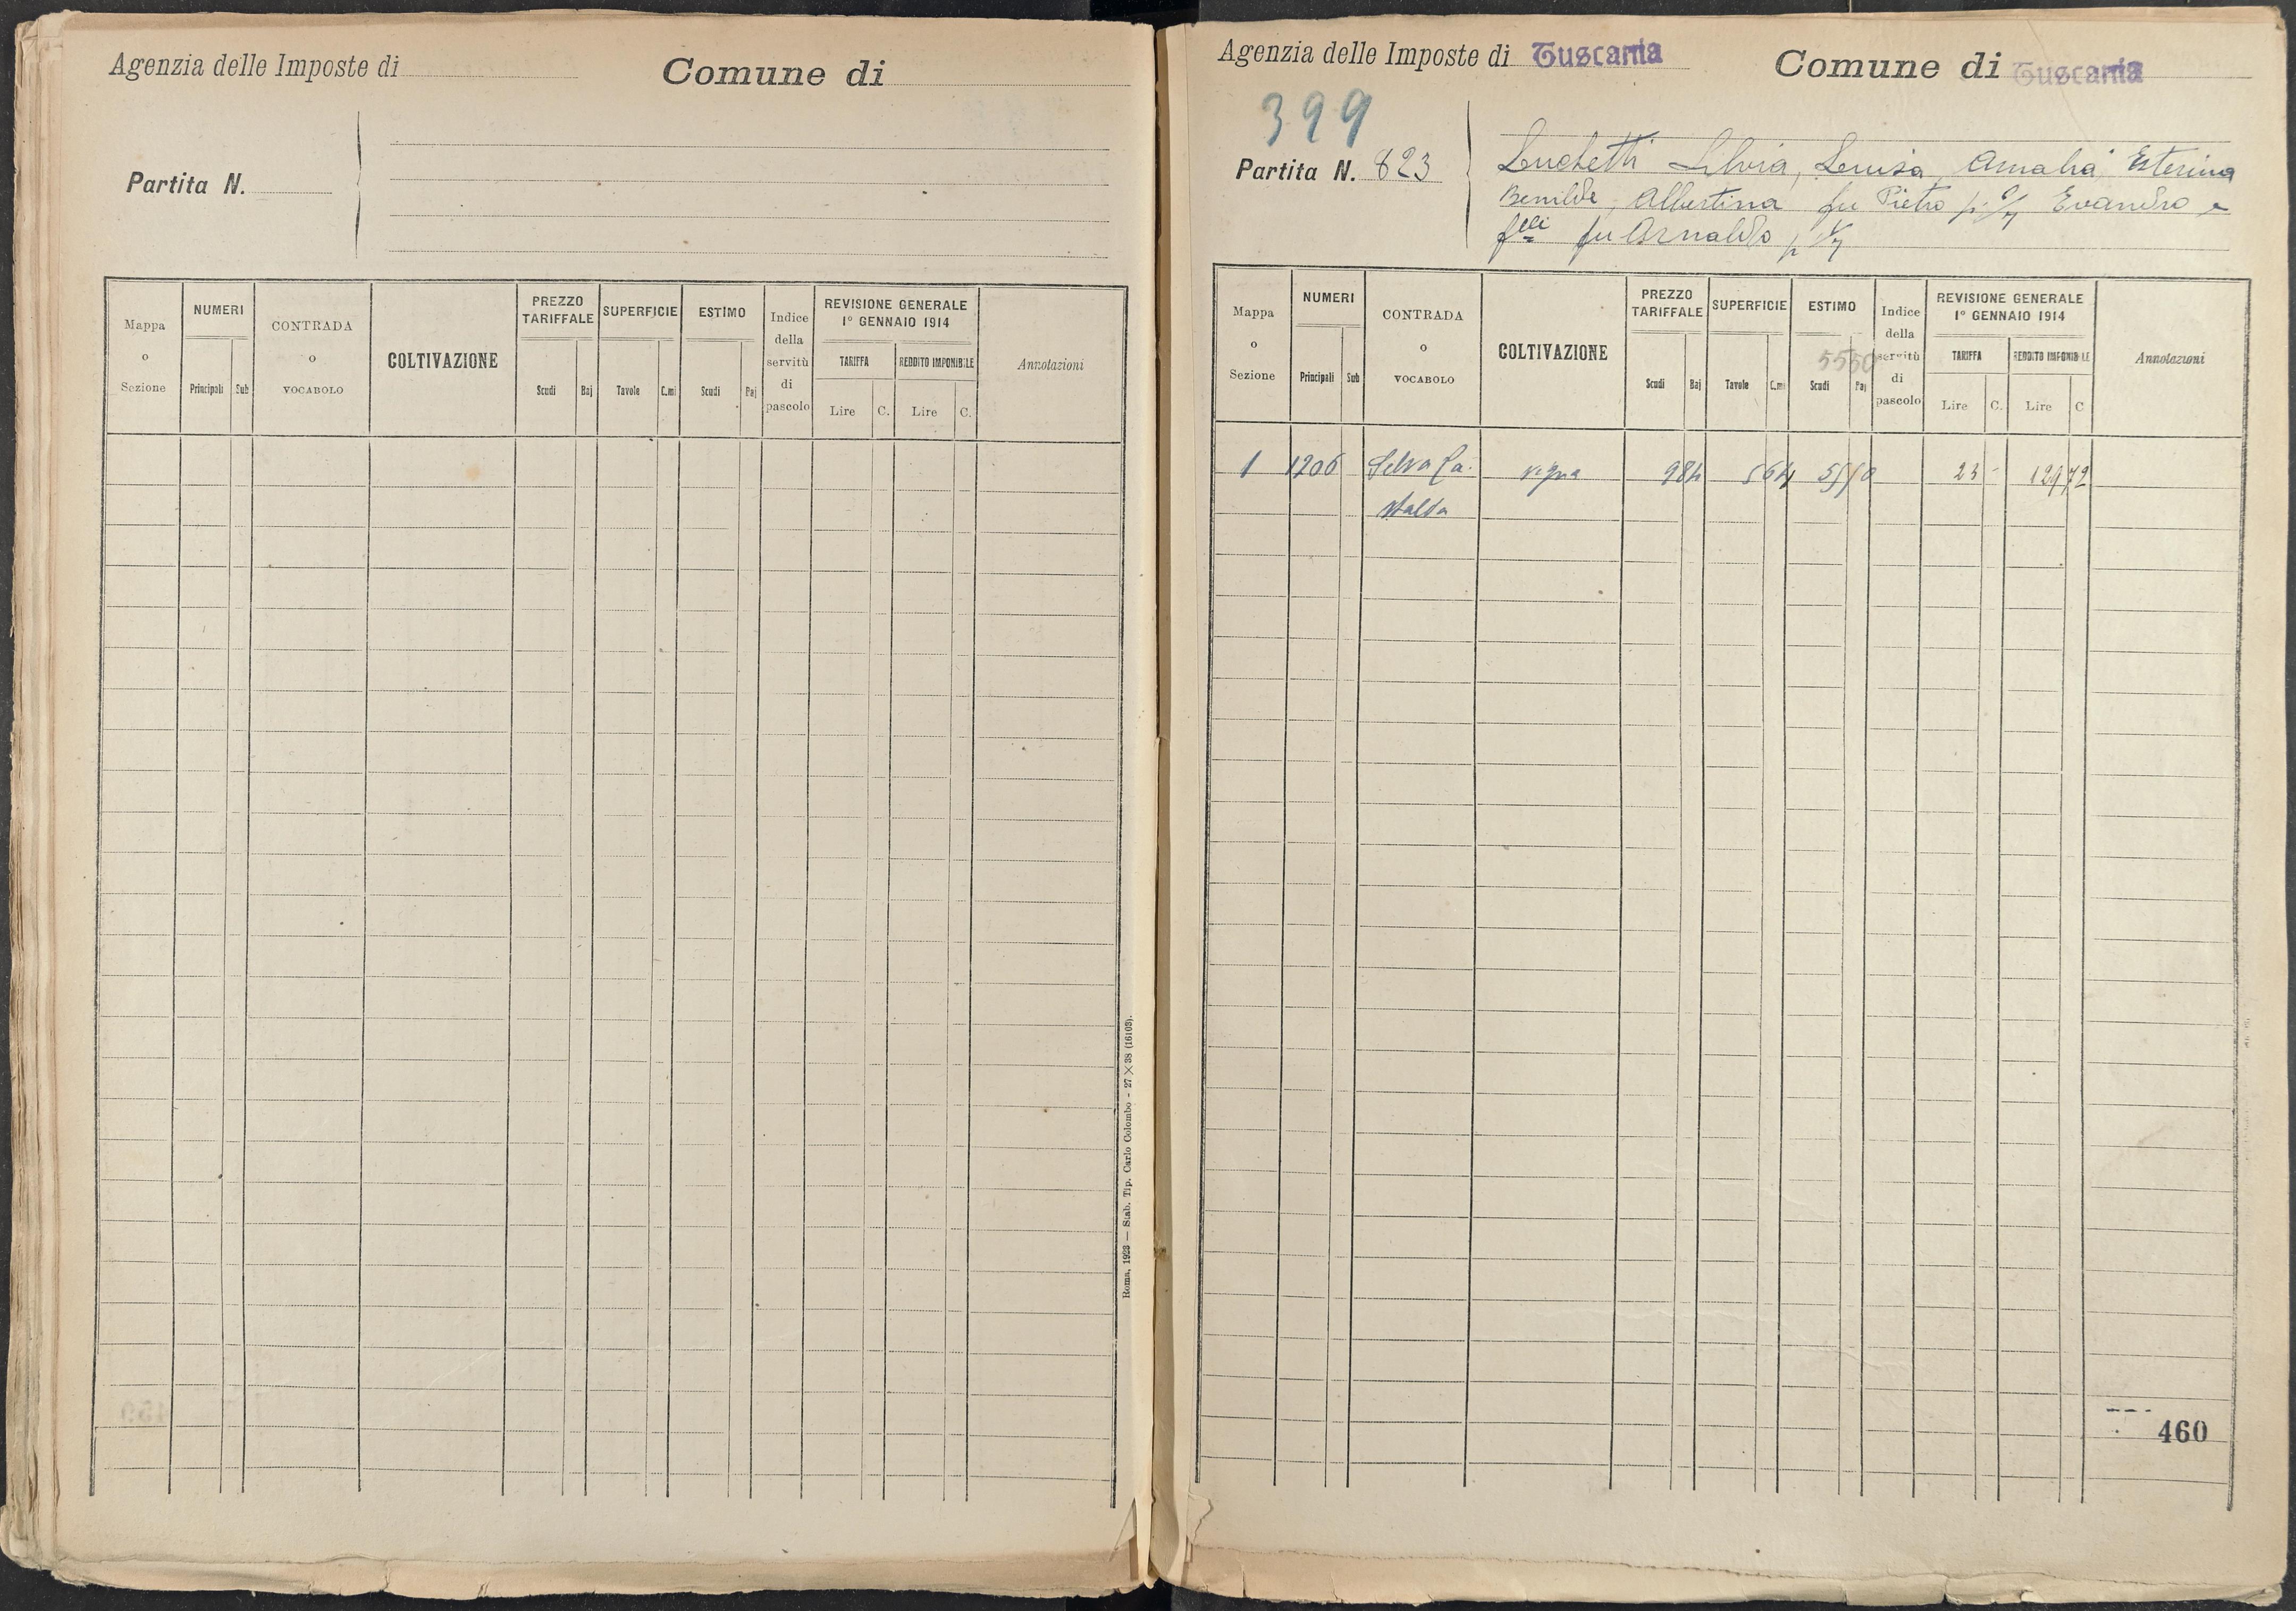 Agenzia delle Imposte di
Comune di
Partita N.
Mappa o Sezione
NUMERI
Principali Sub
CONTRADA o VOCABOLO
COLTIVAZIONE
PREZZO TARIFFALE
Scudi Baj
SUPERFICIE
Tavole C.mi
ESTIMO
Scudi Baj
Indice della servitù di pascolo
REVISIONE GENERALE
1º GENNAIO 1914
TARIFFA
Lire C.
REDDITO IMPONIBILE
Lire C.
Annotazioni
Roma, 1923 — Stab. Tip. Carlo Colombo - 27 × 38 (16103).
Agenzia delle Imposte di Tuscania
Comune di Tuscania
399
Partita N. 823
Luchetti Silvia, Luisa, Amalia, Esterina
Benilde, Albertina fu Pietro p. 6/7 Evandro e
flli fu Arnaldo p 1/7
Mappa o Sezione
NUMERI
Principali Sub
CONTRADA o VOCABOLO
COLTIVAZIONE
PREZZO TARIFFALE
Scudi Baj
SUPERFICIE
Tavole C.mi
ESTIMO
5550
Scudi Baj
Indice della servitù di pascolo
REVISIONE GENERALE
1º GENNAIO 1914
TARIFFA
Lire C.
REDDITO IMPONIBILE
Lire C
Annotazioni
1 1206 Selva Ca- vigna 984 564 5550 23 - 129 72
stalda
460